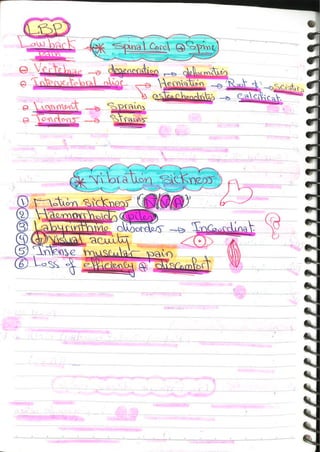 LBP
Low back pain
* Spinal Cord @ Spine
Vertebrae → degeneration → deformities
Intervertebral disc → Herniation → Root → sciatica
→ osteochondritis → calcificat.
Ligament → Sprains
Tendons → Strains
* Vibration Sickness
① Motion sickness (N, V, A)
② Haemorrhoids (piles)
③ Labyrinthine disorder → Incoordinat.
④ Visual acuity
⑤ Intense muscular pain
⑥ Loss of efficiency @ discomfort